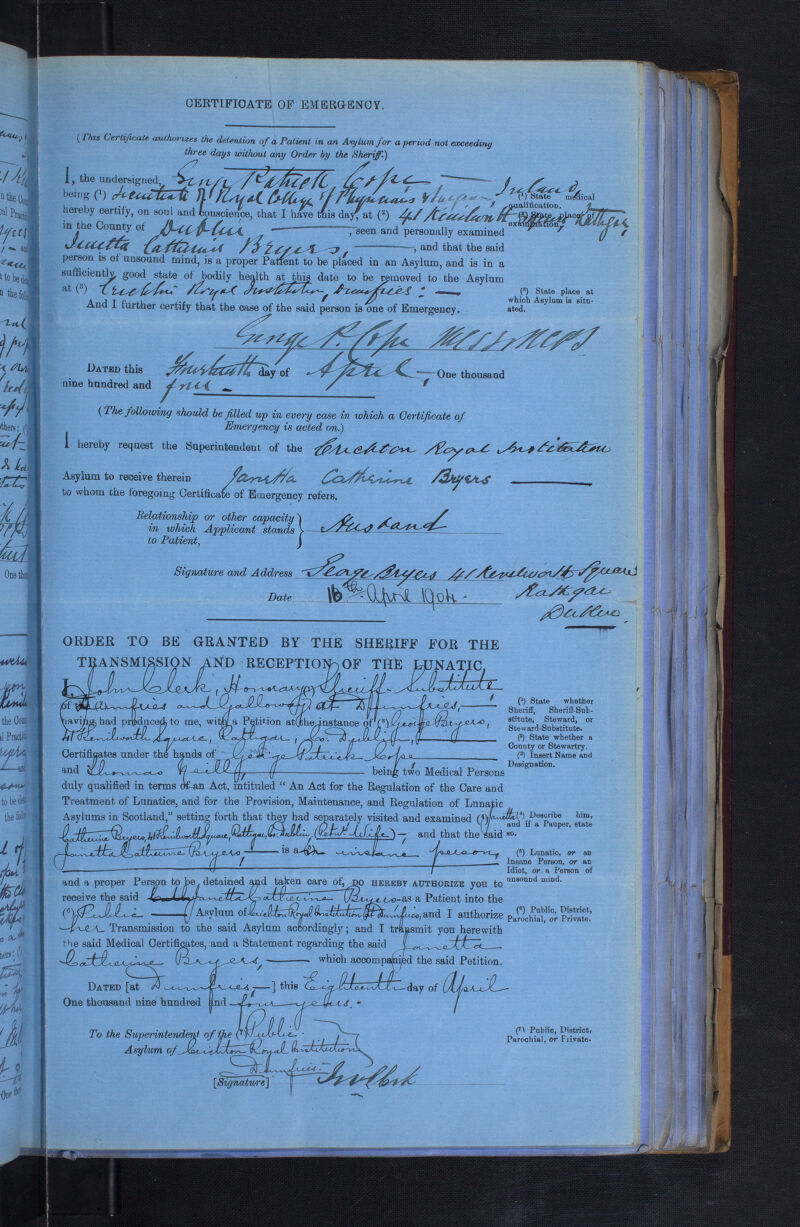 CERTIFICATE OF EMERGENCY.
(This Certificate authorizes the detention of a Patient in an Asylum for a period not exceeding
three days without any Order by the Sheriff.)
I, the undersigned, George Patrick Cope —
being (¹) Licentiate of Royal College of Physicians & Surgeons, Ireland,
(¹) State medical
qualification.
hereby certify, on soul and conscience, that I have this day, at (²) 41 Kenilworth Square, Rathgar,
(²) State place of
examination.
in the County of Dublin —, seen and personally examined
Janetta Catherine Bryers, —, and that the said
person is of unsound mind, is a proper Patient to be placed in an Asylum, and is in a
sufficiently good state of bodily health at this date to be removed to the Asylum
at (³) Crichton Royal Institution, Dumfries : —
(³) State place at
which Asylum is situ-
ated.
And I further certify that the case of the said person is one of Emergency.
George P. Cope
DATED this Fourteenth day of April —, One thousand
nine hundred and four —
(The following should be filled up in every case in which a Certificate of
Emergency is acted on.)
I hereby request the Superintendent of the Crichton Royal Institution
Asylum to receive therein Janetta Catherine Bryers —
to whom the foregoing Certificate of Emergency refers.
Relationship or other capacity
in which Applicant stands
to Patient,
Husband
Signature and Address George Bryers 41 Kenilworth Square
Rathgar
Dublin.
Date 16th April 1904.
ORDER TO BE GRANTED BY THE SHERIFF FOR THE
TRANSMISSION AND RECEPTION OF THE LUNATIC,
I, John Clerk, Honorary (¹) Sheriff-Substitute
of Dumfries and Galloway at Dumfries, —
(¹) State whether
Sheriff, Sheriff-Sub-
stitute, Steward, or
Steward-Substitute.
having had produced to me, with a Petition at the instance of (³) George Bryers,
(²) State whether a
County or Stewartry.
41 Kenilworth Square, Rathgar, Co. Dublin, —
(³) Insert Name and
Designation.
Certificates under the hands of George Patrick Cope —
and Thomas Neilly — being two Medical Persons
duly qualified in terms of an Act, intituled “ An Act for the Regulation of the Care and
Treatment of Lunatics, and for the Provision, Maintenance, and Regulation of Lunatic
Asylums in Scotland,” setting forth that they had separately visited and examined (⁴) Janetta
(⁴) Describe him,
and if a Pauper, state
so.
Catherine Bryers, 41 Kenilworth Square, Rathgar, Co. Dublin, (Petnr's Wife) —, and that the said
Janetta Catherine Bryers — is a (⁵) n insane person,
(⁵) Lunatic, or an
Insane Person, or an
Idiot, or a Person of
unsound mind.
and a proper Person to be detained and taken care of, DO HEREBY AUTHORIZE you to
receive the said Janetta Catherine Bryers as a Patient into the
(⁶) Public — Asylum of Crichton Royal Institution at Dumfries, and I authorize
(⁶) Public, District,
Parochial, or Private.
her Transmission to the said Asylum accordingly; and I transmit you herewith
the said Medical Certificates, and a Statement regarding the said Janetta
Catherine Bryers, — which accompanied the said Petition.
DATED [at Dumfries, —] this Eighteenth day of April
One thousand nine hundred and four years.
To the Superintendent of the (⁷) Public
Asylum of Crichton Royal Institution
Dumfries.
(⁷) Public, District,
Parochial, or Private.
[Signature] Jno Clerk